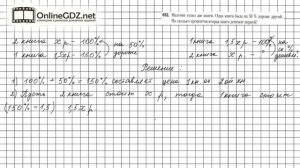 OnlineGDZ.net
492. Мальчик купил две книги. Одна книга была на 50 % дороже другой. На сколько процентов вторая книга дешевле первой?
2 книга х р - 100%
1 книга 1,5х р - 150%
на 50% дороже
1 книга 1,5х р - 100%
2 книга х р -
на ?% <
Решение:
1) 100% + 50% = 150% составляет цена 1 кн. от 2ой кн.
2) Пусть 2 книга стоит х р, тогда 1 книга стоит
(150% = 1,5) 1,5х р